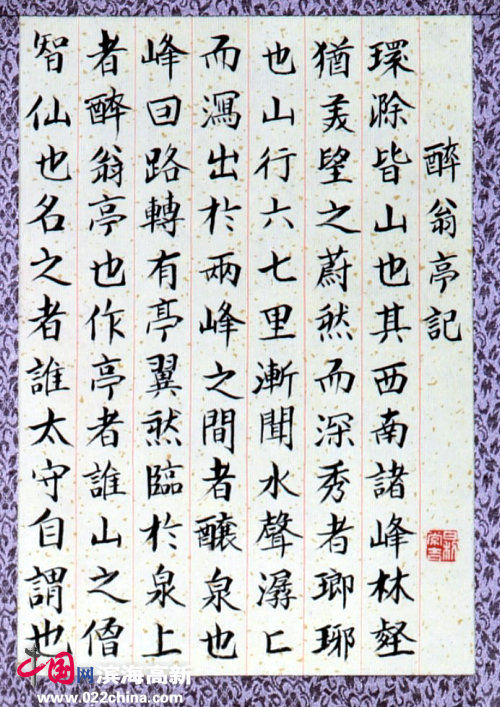 醉翁亭記
環滁皆山也其西南諸峰林壑
猶羙望之蔚然而深秀者瑯琊
也山行六七里漸聞水聲潺匕
而瀉出於兩峰之間者釀泉也
峰回路轉有亭翼然臨於泉上
者醉翁亭也作亭者誰山之僧
智仙也名之者誰太守自謂也
中国网 滨海高新
www.022china.com